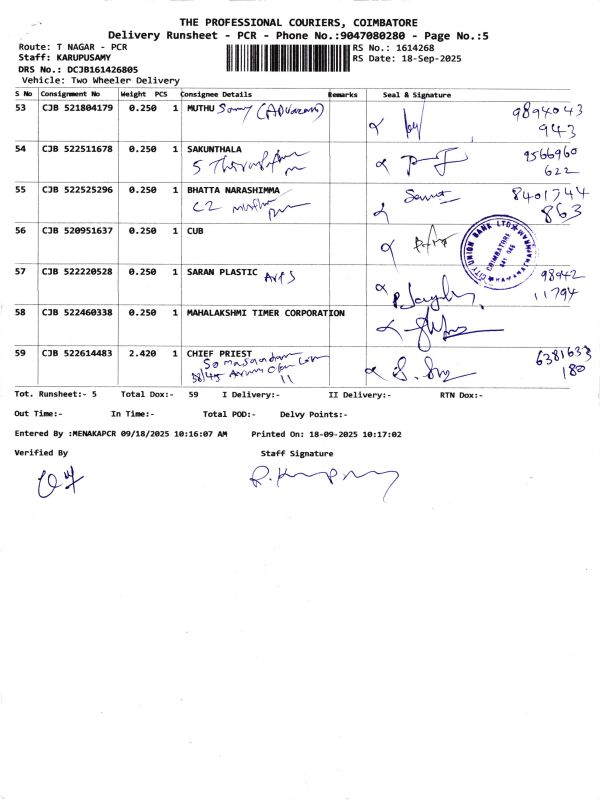 THE PROFESSIONAL COURIERS, COIMBATORE
Delivery Runsheet - PCR - Phone No.:9047080280 - Page No.:5
Route: T NAGAR - PCR RS No.: 1614268
Staff: KARUPUSAMY RS Date: 18-Sep-2025
DRS No.: DCJB161426805
Vehicle: Two Wheeler Delivery
S No Consignment No Weight PCS Consignee Details Remarks Seal & Signature
53 CJB 521804179 0.250 1 MUTHU Samy (Advocate) 9894043
943
54 CJB 522511678 0.250 1 SAKUNTHALA 9566960
5 622
55 CJB 522525296 0.250 1 BHATTA NARASHIMMA 8401744
C2 863
56 CJB 520951637 0.250 1 CUB
CITY UNION BANK LTD
COIMBATORE
57 CJB 522220528 0.250 1 SARAN PLASTIC 98942
11794
58 CJB 522460338 0.250 1 MAHALAKSHMI TIMER CORPORATION
59 CJB 522614483 2.420 1 CHIEF PRIEST 6381633
180
38/45
11
Tot. Runsheet:- 5 Total Dox:- 59 I Delivery:- II Delivery:- RTN Dox:-
Out Time:- In Time:- Total POD:- Delvy Points:-
Entered By :MENAKAPCR 09/18/2025 10:16:07 AM Printed On: 18-09-2025 10:17:02
Verified By Staff Signature